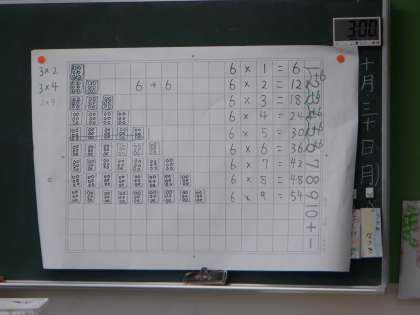 3:00
3×2
3×4
6+6
6×1=6
6×2=12
6×3=18
6×4=24
6×5=30
6×6=36
6×7=42
6×8=48
6×9=54
7
8
9
10
+
−
十月三十日月